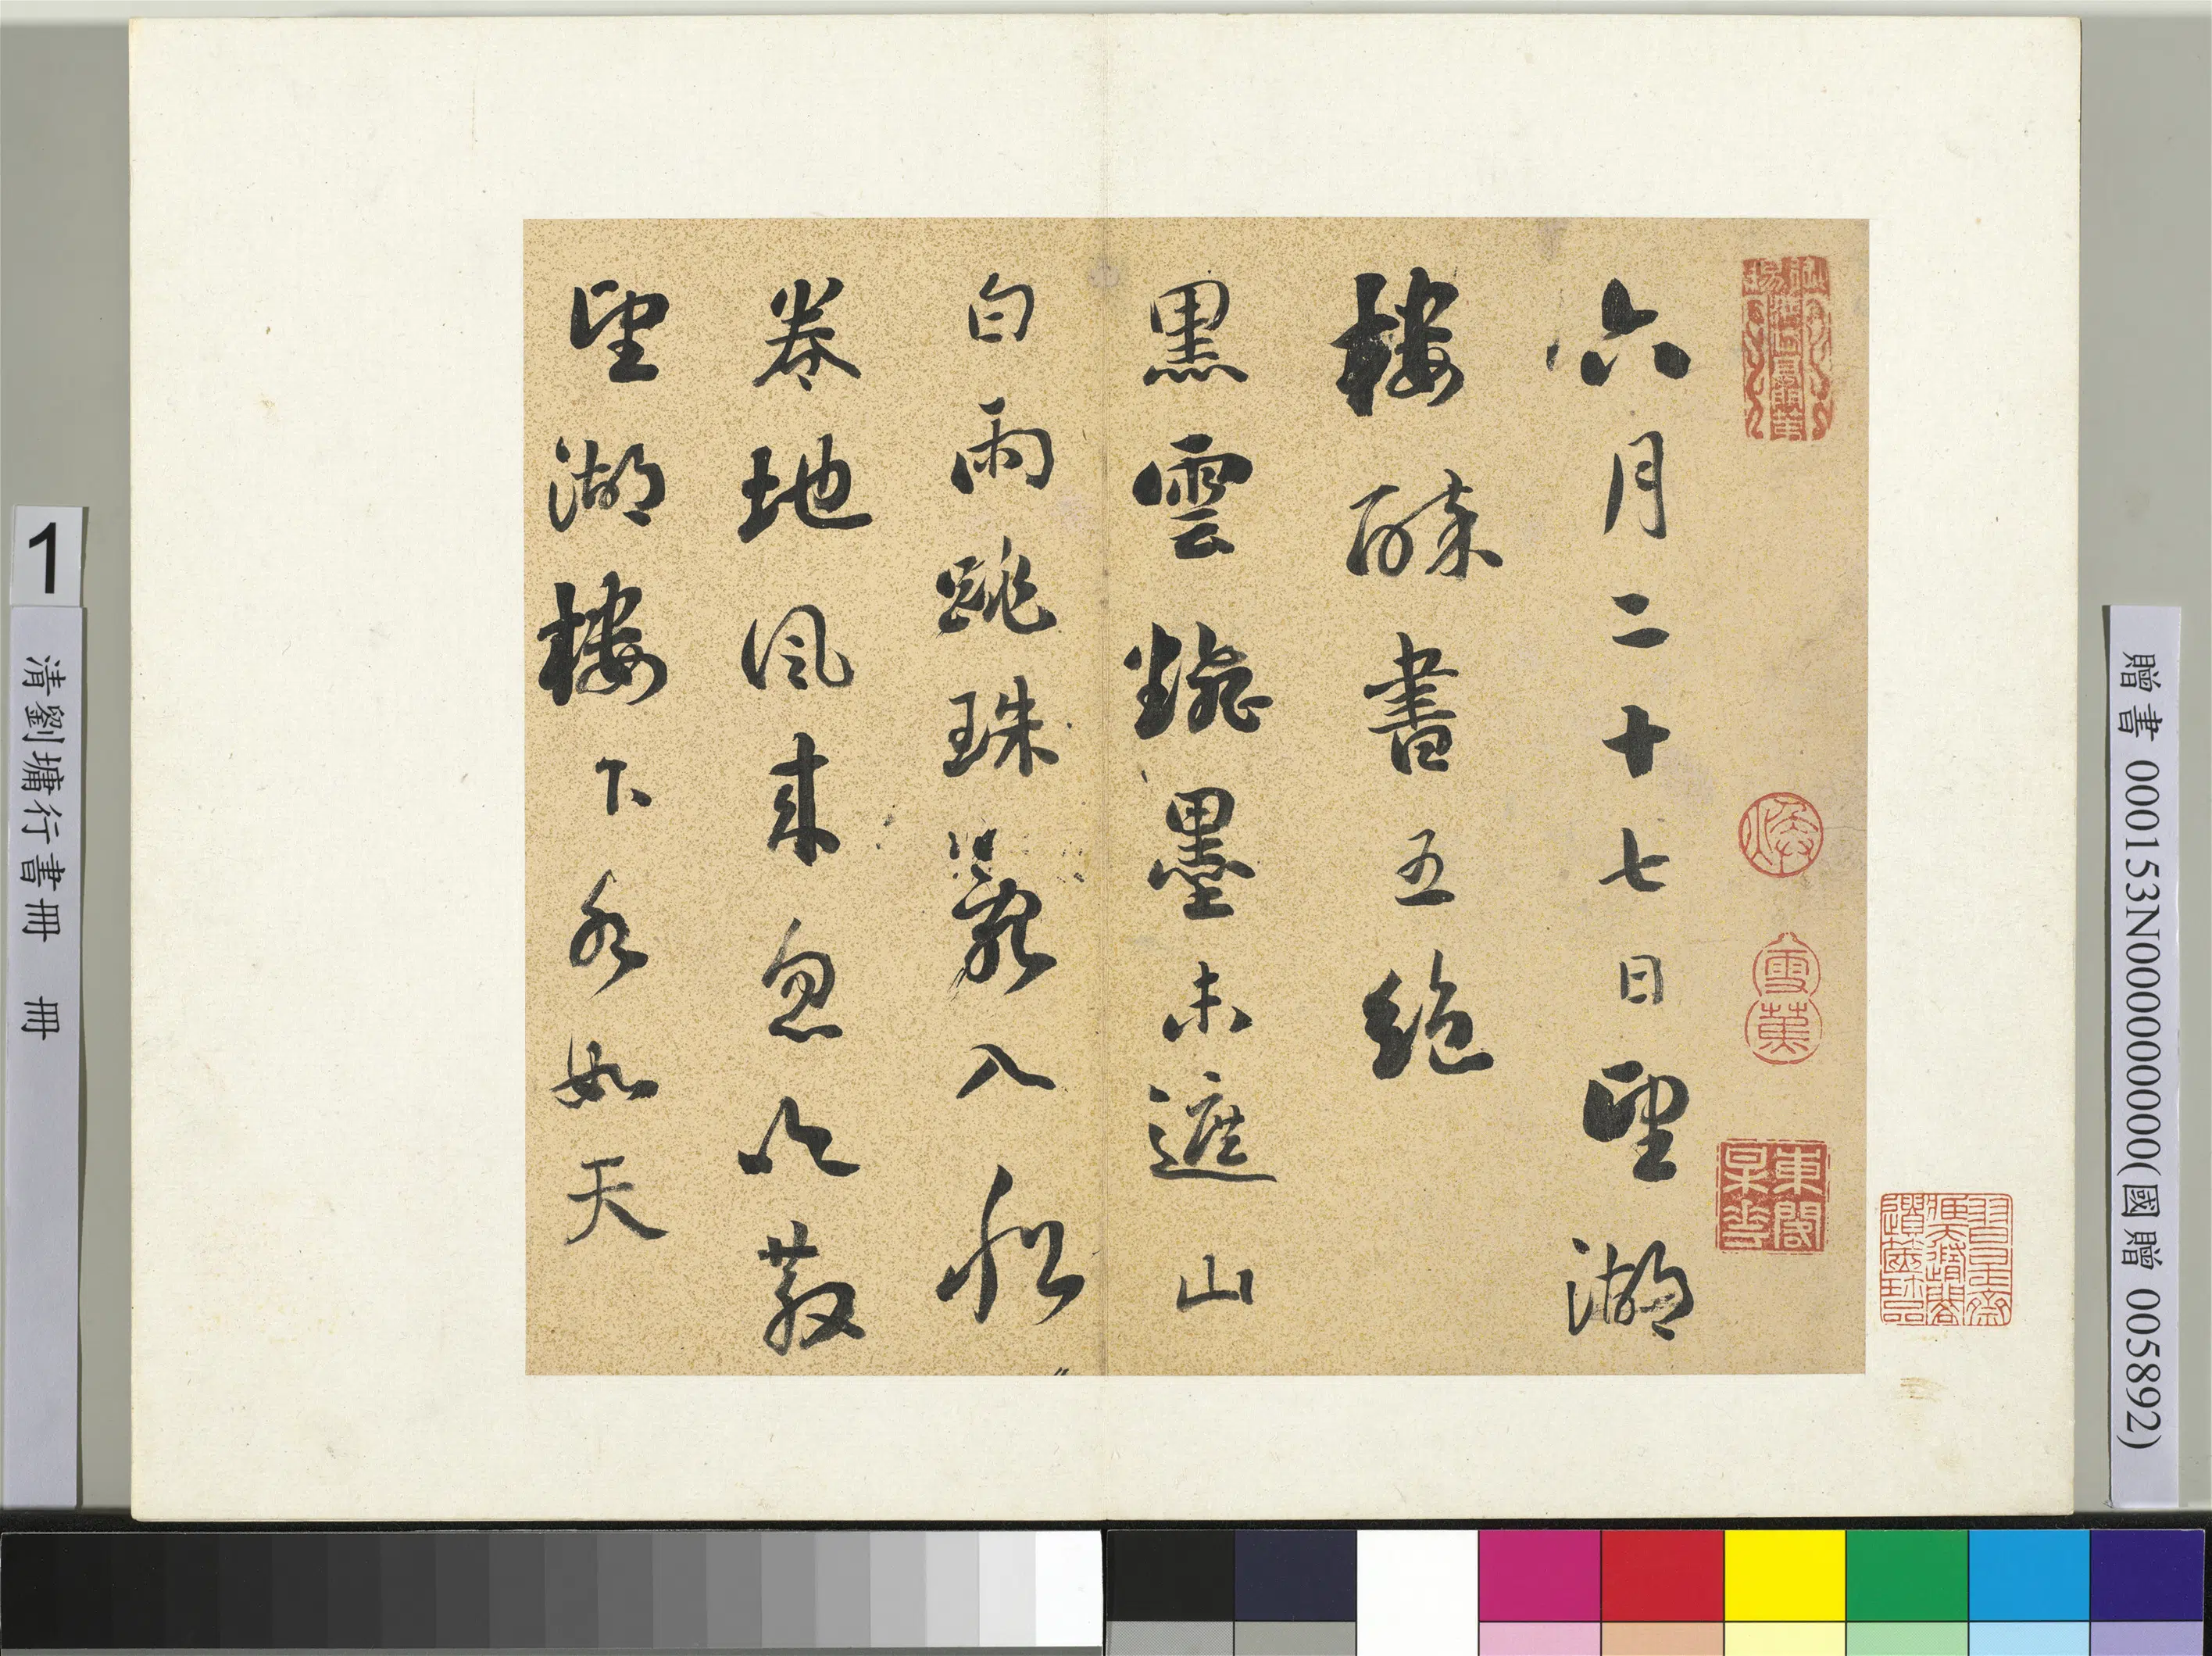 六月二十七日望湖
樓醉書五絕
黑雲飜墨未遮山
白雨跳珠亂入船
卷地風來忽吹散
望湖樓下水如天
東閣
1
清劉墉行書冊　冊
贈書 000153N000000000(國贈 005892)